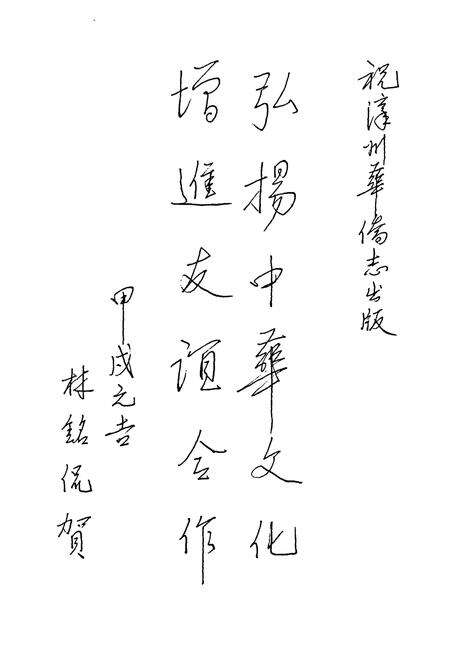 祝漳州華僑志出版
弘揚中華文化
增進友誼合作
甲戌元吉
林銘侃賀